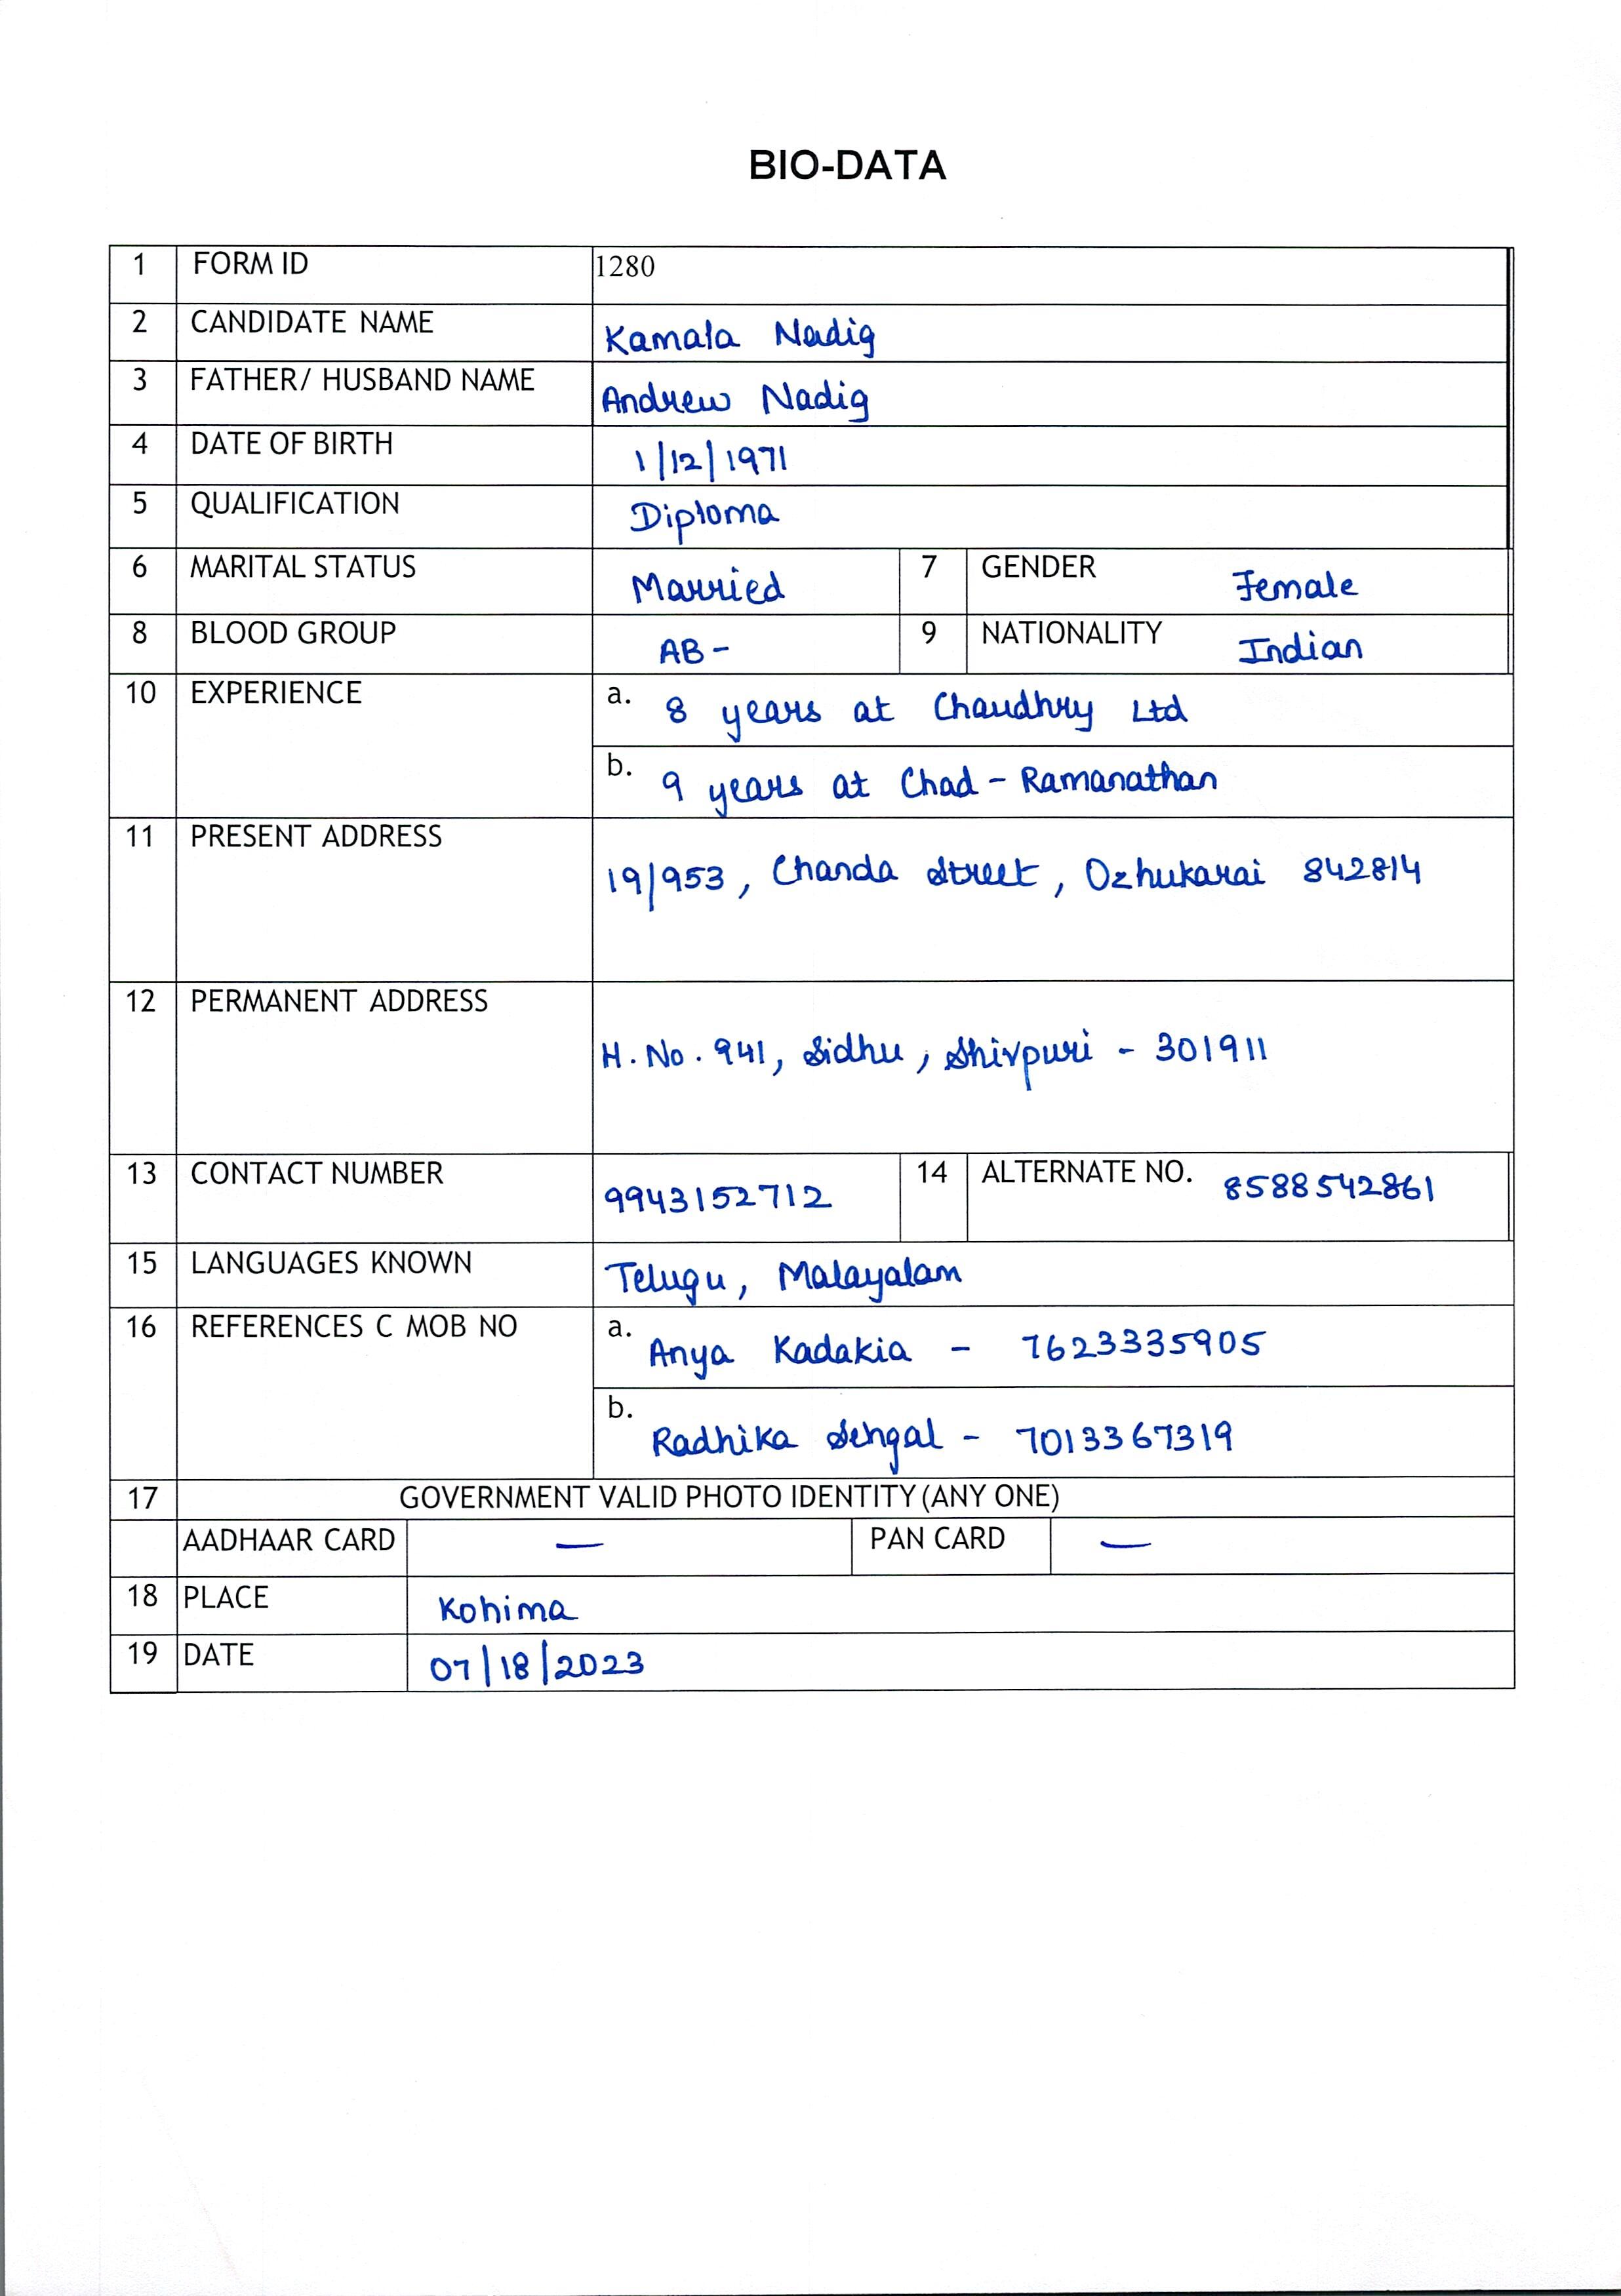 BIO-DATA
1 FORM ID 1280
2 CANDIDATE NAME Kamala Nadig
3 FATHER/ HUSBAND NAME Andrew Nadig
4 DATE OF BIRTH 1/12/1971
5 QUALIFICATION Diploma
6 MARITAL STATUS Married 7 GENDER Female
8 BLOOD GROUP AB- 9 NATIONALITY Indian
10 EXPERIENCE a. 8 years at Chaudhry Ltd
b. 9 years at Chad - Ramanathan
11 PRESENT ADDRESS 19/953, Chanda Street, Ozhukarai 842814
12 PERMANENT ADDRESS H.No. 941, Sidhu, Shivpuri - 301911
13 CONTACT NUMBER 9943152712 14 ALTERNATE NO. 8588542861
15 LANGUAGES KNOWN Telugu, Malayalam
16 REFERENCES C MOB NO a. Anya Kadakia - 7623335905
b. Radhika Sehgal - 7013367319
17 GOVERNMENT VALID PHOTO IDENTITY (ANY ONE)
AADHAAR CARD — PAN CARD —
18 PLACE Kohima
19 DATE 07/18/2023